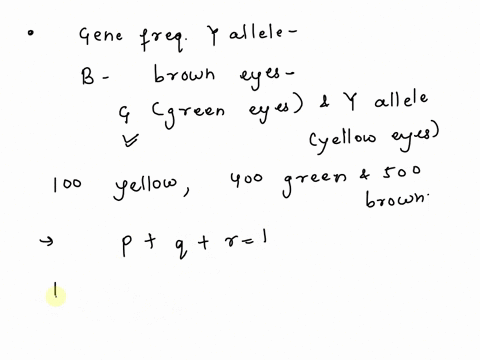 • Gene freq. Y allele-
B- brown eyes-
G (green eyes) & Y allele
(yellow eyes)
100 yellow, 400 green & 500
brown.
→ p + q + r = 1
1